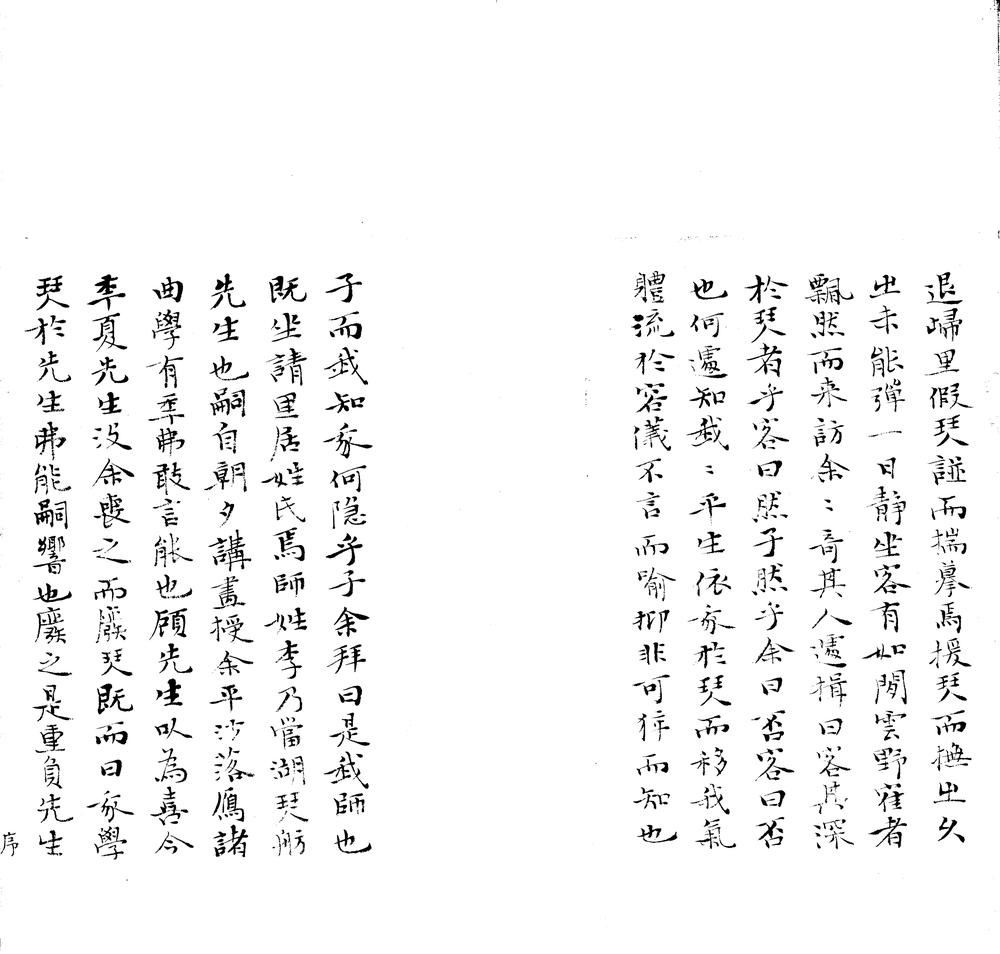 退歸里假琹譜而揣摹焉援琹而撫㞢久
㞢未能彈一日靜坐客有如閒雲野隺者
飄然而来訪余〻奇其人遽揖曰客其深
於琹者乎客曰然子然乎余曰否客曰否
也何遽知㦲〻平生依家於琹而移我氣
體流於容儀不言而喻抑非可猝而知也
子而㦲知家何隐乎子余拜曰是㦲師也
既坐請里居姓氏焉師姓李乃當湖琹舫
先生也嗣自朝夕講畫授余平沙落鴈諸
曲學有季弗敢言能也顧先生㕥為喜今
季夏先生没余喪之而廢琹既而曰家學
琹於先生弗能嗣響也廢之是重負先生
序